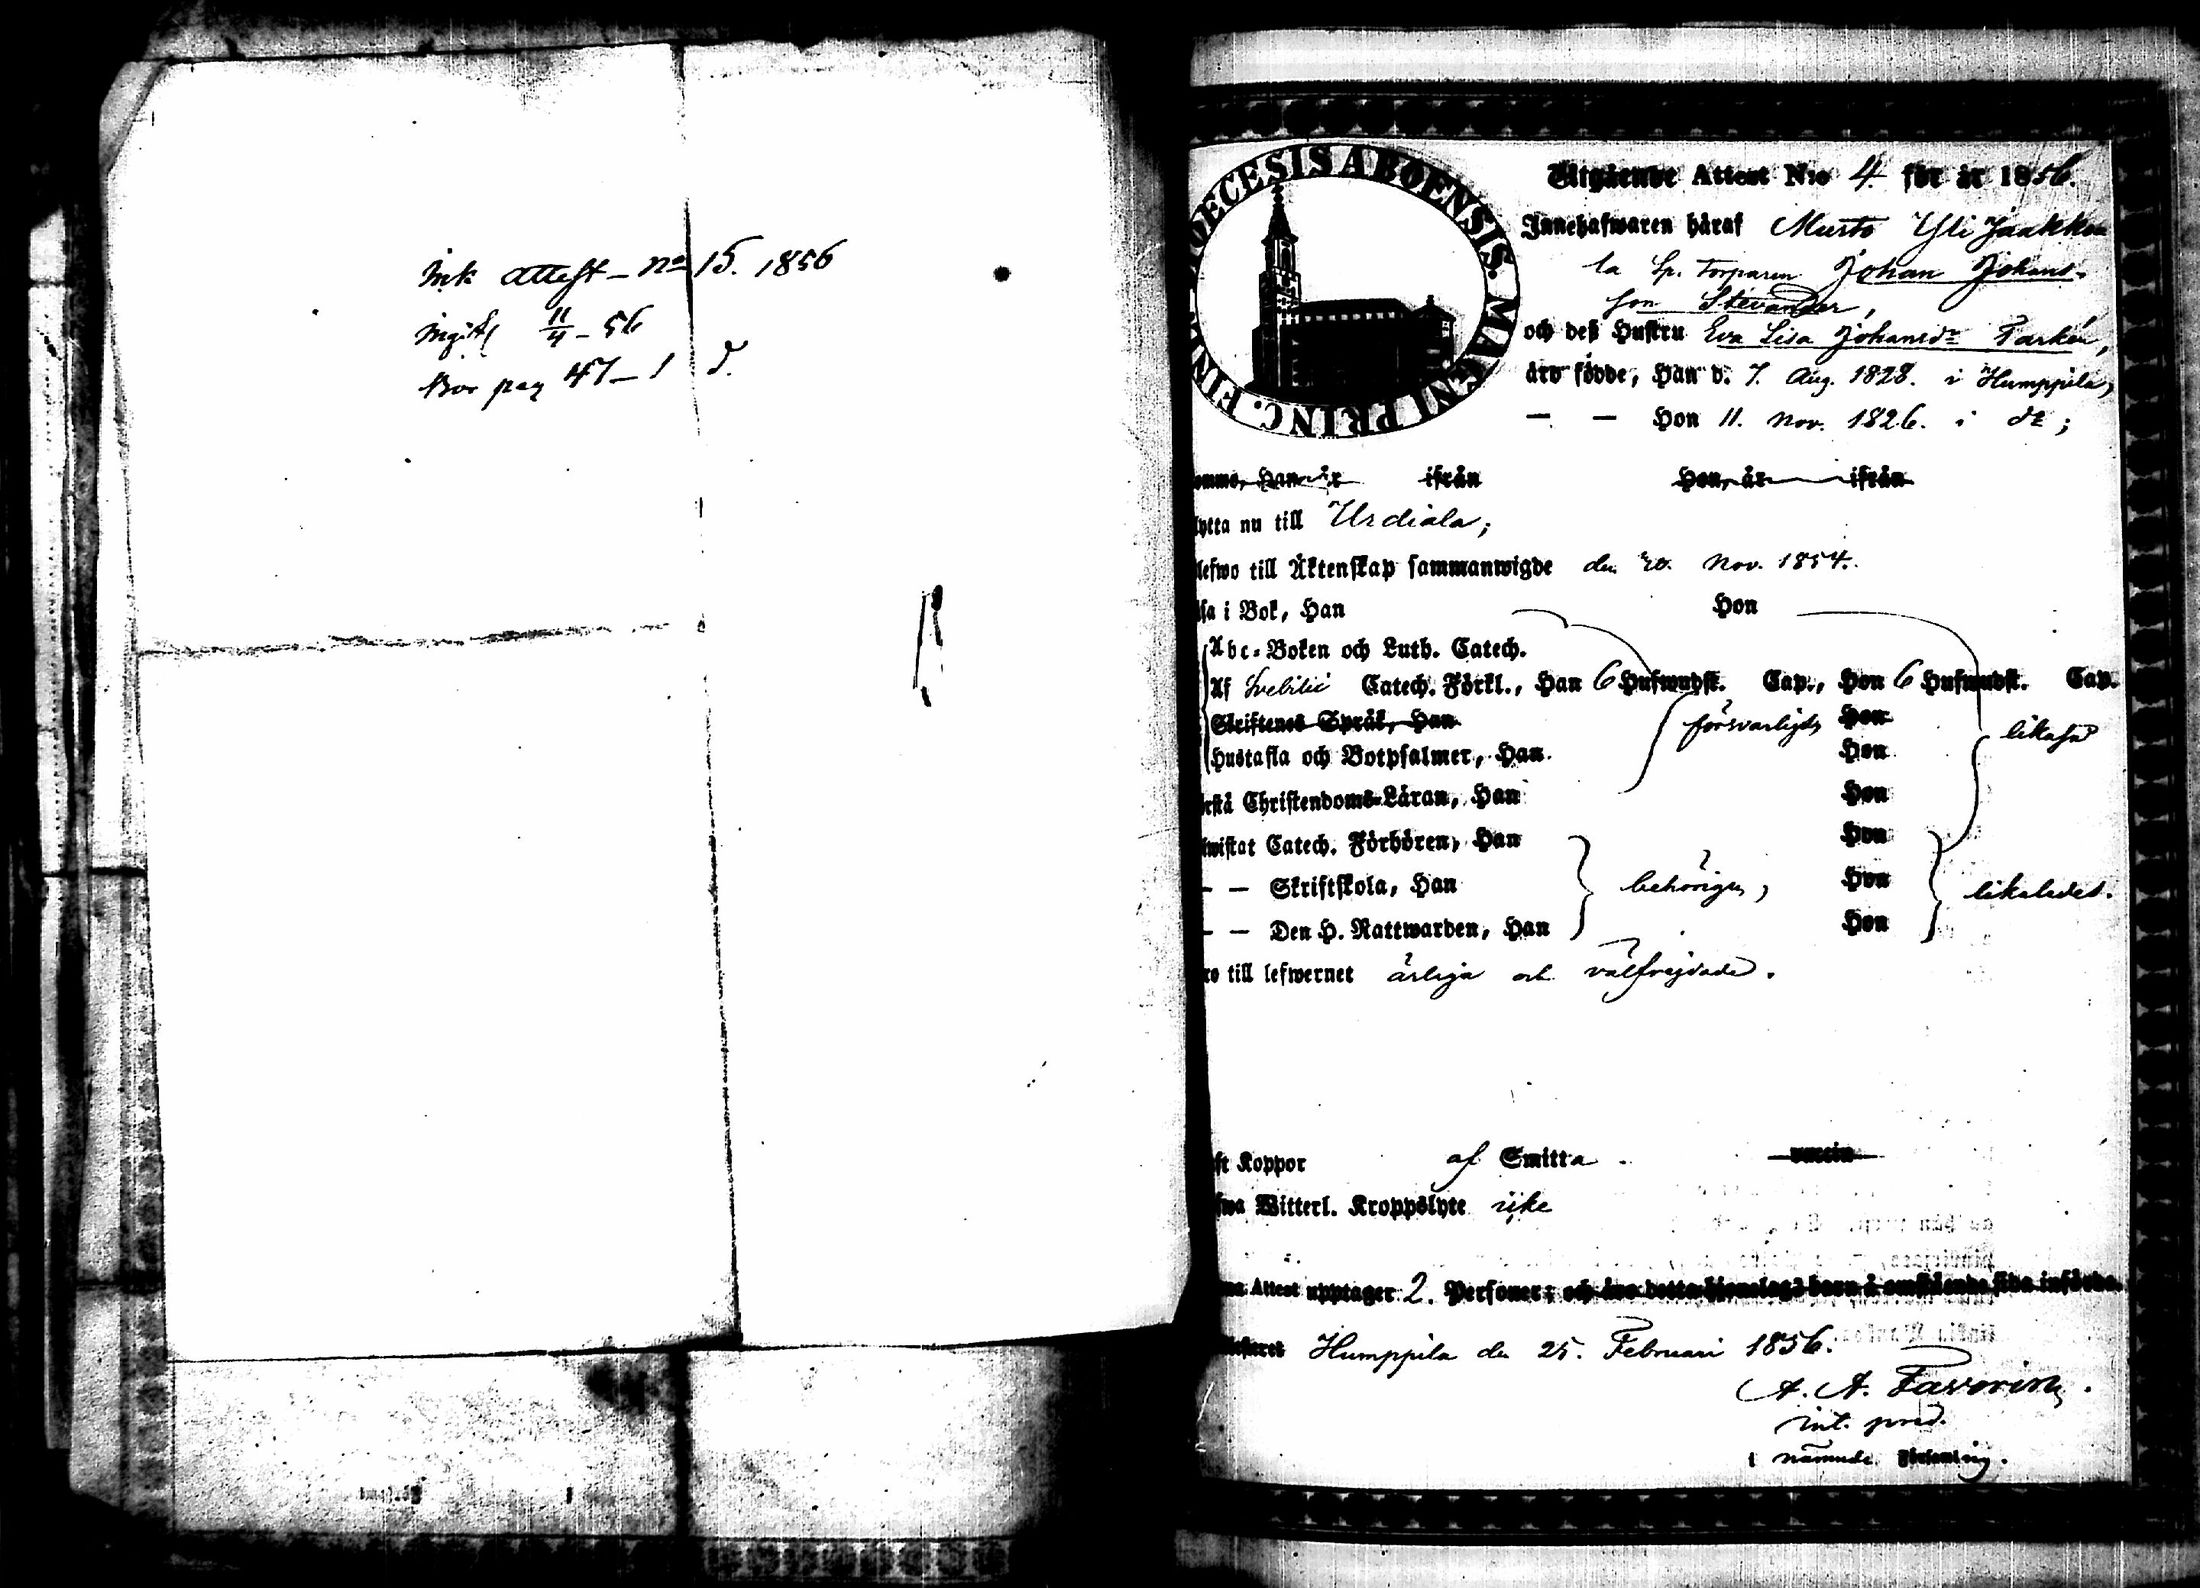 Ink attest_ No 15. 1856
ingift 11/4 - 56
Bor pag 47_1 d.
DIOECESIS ABOENSIS. MAGNI PRINC. FINL
Utgående Attest N:o 4. för år 1856.
Innehafwaren häraf Murto Yli Jaakko
la Sp. torparen Johan Johans-
son Stevander,
och deß Hustru Eva Lisa Johansdr Parkén,
äro födde, Han d. 7. Aug. 1828. i Humppila,
— — Hon 11. Nov. 1826. i do;
omme, Han är ifrån Hon, år ifrån
lytta nu till Urdiala;
lefwo till Äktenskap sammanwigde den 20. Nov. 1854.
äsa i Bok, Han Hon
Abc-Boken och Luth. Catech.
Af Svebilii Catech. Förkl., Han 6 Hufwudst. Cap., Hon 6 Hufwudst. Cap.
Skriftenes Språk, Han försvarligt, Hon likaså
Hustafla och Botpsalmer, Han Hon
rstå Christendoms-Läran, Han Hon
wistat Catech. Förhören, Han Hon
— — Skriftskola, Han behörigen, Hon likaledes.
— — Den H. Nattwarden, Han Hon
ro till lefwernet ärliga och välfrejdade.
ft Koppor af Smitta. vaccin
fwa Witterl. Kroppslyte icke
na Attest upptager 2. Personer; och äro detta hjonelags barn å omstående sida införde.
Humppila den 25. Februari 1856.
A. A. Favorin,
int. pred.
i nämnde Församling.